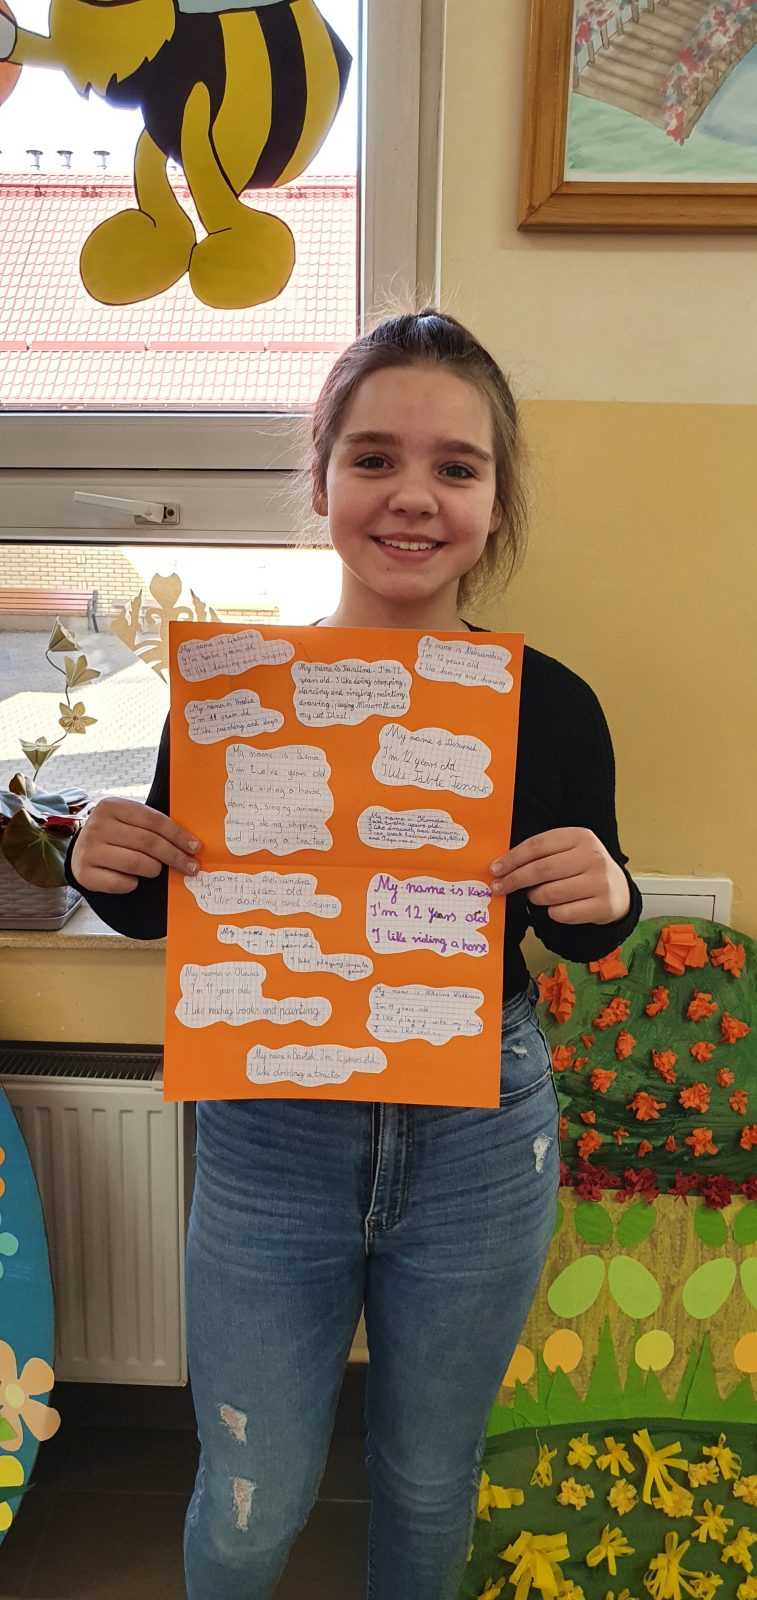 My name is
I'm twelve years old
I like dancing and singing
My name is Karolina. I'm 12
years old. I like doing shopping,
dancing and singing, painting,
drawing, playing Minecraft and
my cat
My name is Aleksandra
I'm 12 years old
I like dancing and drawing
My name is
I'm 11 years old
I like and dogs
My name is
I'm 12 years old
I like Table Tennis
My name is
I'm twelve years old
I like riding a horse,
dancing, singing,
doing shopping
and driving a tractor
My name is
years old
I like
and
My name is Aleksandra
I'm 11 years old
I like dancing and singing
My name is Kasia
I'm 12 years old
I like riding a horse
My name is
I'm 12 years old
I like playing
games
My name is Oliwia
I'm 11 years old
I like reading books and painting
My name is
I'm 11 years old
I like playing with my family
I also like
My name is Bartek. I'm 12 years old.
I like driving a tractor.